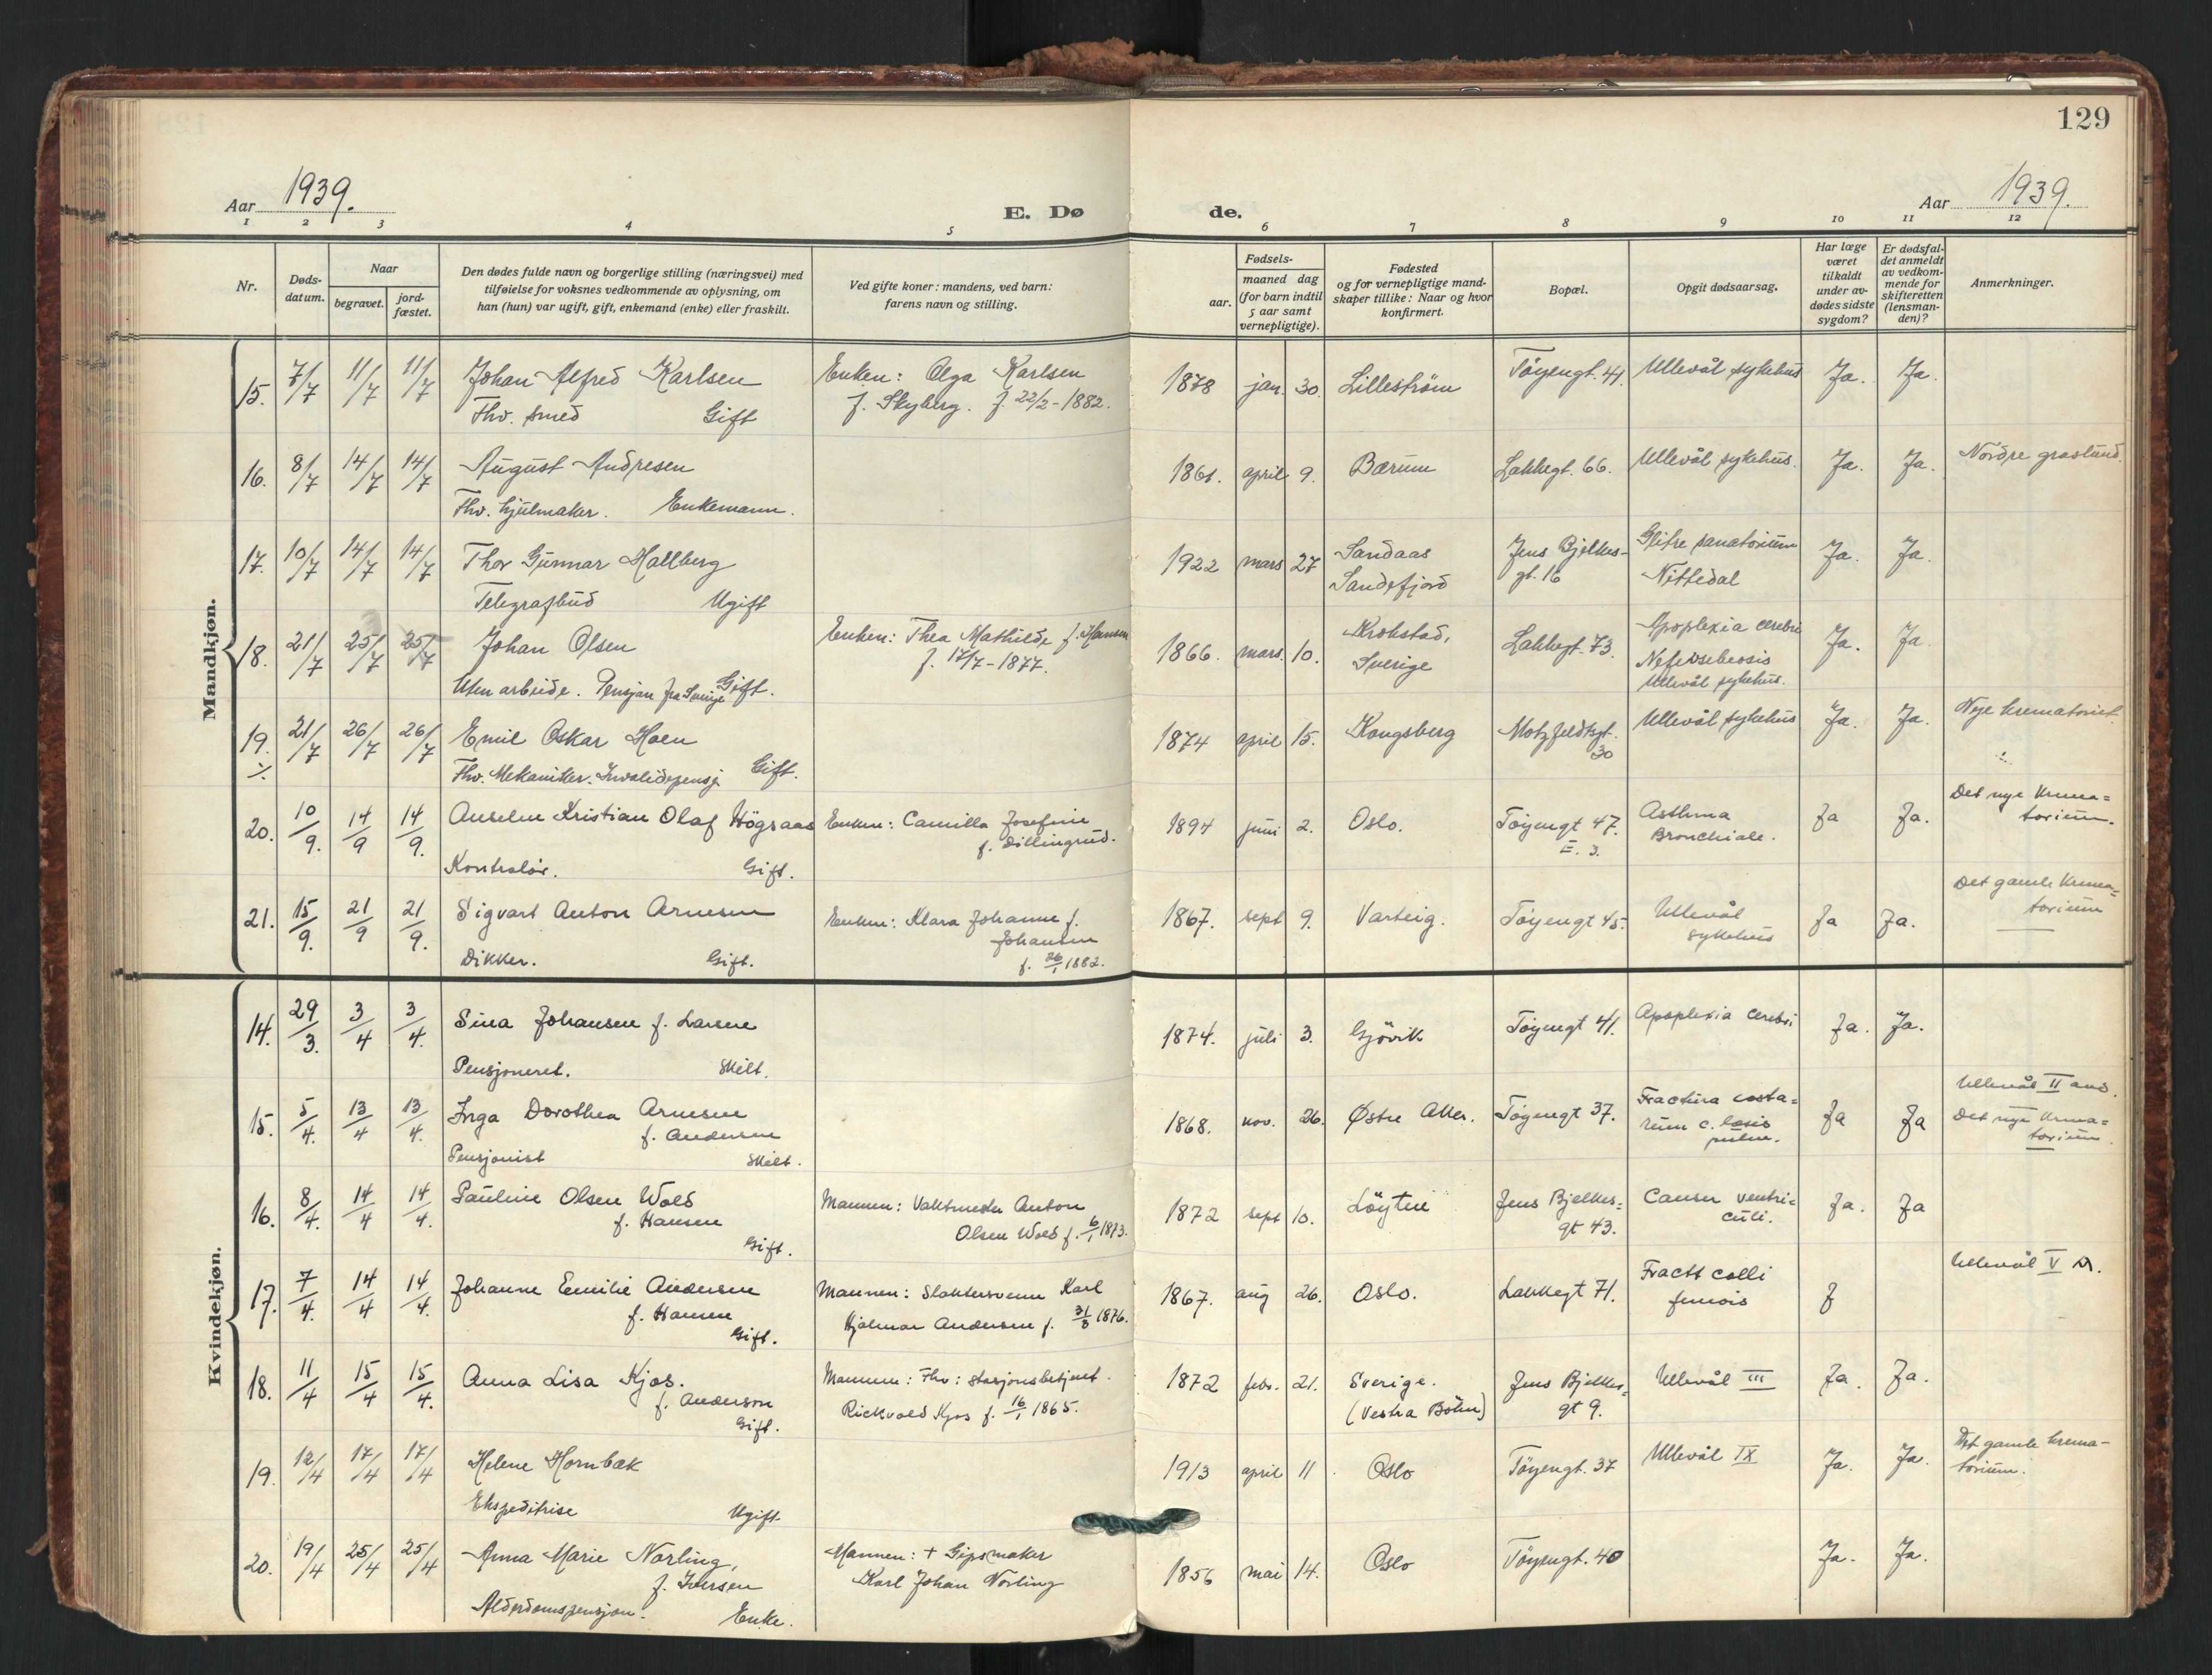 129
Aar 1939.
E. Døde.
Aar 1939.
1 2 3 4 5 6 7 8 9 10 11 12
Nr.
Døds-datum.
Naar
begravet.
jord-fæstet.
Den dødes fulde navn og borgerlige stilling (næringsvei) med
tilføielse for voksnes vedkommende av oplysning, om
han (hun) var ugift, gift, enkemand (enke) eller fraskilt.
Ved gifte koner: mandens, ved barn:
farens navn og stilling.
Fødsels-
aar.
maaned dag
(for barn indtil
5 aar samt
vernepligtige).
Fødested
og for vernepligtige mand-
skaper tillike: Naar og hvor
konfirmert.
Bopæl.
Opgit dødsaarsag.
Har læge
været
tilkaldt
under av-
dødes sidste
sygdom?
Er dødsfal-
det anmeldt
av vedkom-
mende for
skifteretten
(lensman-
den)?
Anmerkninger.
Mandkjøn.
15. 7/7 11/7 11/7 Johan Alfred Karlsen Enken: Olga Karlsen 1878 jan. 30. Lillestrøm Töyengt. 41. Ullevål sykehus Ja. Ja.
Fhv. smed Gift f. Skyberg. f. 22/2-1882.
16. 8/7 14/7 14/7 August Andresen 1861. april 9. Bærum Lakkegt. 66. Ullevål sykehus. Ja. Ja. Nordre gravlund.
Fhv. hjulmaker. Enkemann.
17. 10/7 14/7 14/7 Thor Gunnar Hallberg 1922 mars 27 Sandaas Jens Bjelkes- Glitre sanatorium Ja. Ja.
Sandefjord gt. 16 Nittedal
Telegrafbud Ugift
18. 21/7 25/7 25/7 Johan Olsen Enken: Thea Mathilde f. Hansen 1866. mars. 10. Krokstad, Lakkegt. 73. Apoplexia cerebri Ja. Ja.
f. 17/7-1877. Sverige
Uten arbeide. Pensjon fra Sverige Gift. Ullevål sykehus.
19. 21/7 26/7 26/7 Emil Oskar Hoen 1874 april 15. Kongsberg Motzfeldtsgt. Ullevål sykehus Ja. Ja. Nye krematoriet
30
Fhv. Mekaniker. Invalidepensj. Gift.
20. 10/9. 14/9 14/9. Anselm Kristian Olaf Högsaas Enken: Camilla Josefine 1894 juni 2. Oslo. Töyengt 47. Asthma Ja Ja. Det nye Krema=
f. Dillingrud. E. 3. Bronchiale. torium.
Kontrolör. Gift.
21. 15/9. 21/9 21/9. Sigvart Anton Arnesen Enken: Klara Johanne f. 1867. sept 9. Varteig. Töyengt 45. Ullevål Ja Ja. Det gamle Krema=
Johansen sykehus torium
Dikker. Gift. f. 26/1 1882.
Kvindekjøn.
14. 29/3. 3/4 3/4. Sina Johansen f. Larsen 1874. juli 3. Gjövik Töyengt 41. Apoplexia cerebri Ja. Ja.
Pensjoneret. Skilt.
15. 5/4. 13/4 13/4. Inga Dorothea Arnesen 1868. nov. 26. Østre Aker. Töyengt 37. Fractura costa= Ja Ja Ullevål II avd.
f. Andersen rum c. Det nye Krema=
Pensjonist Skilt. torium.
16. 8/4. 14/4 14/4. Pauline Olsen Wold Mannen: Vaktmester Anton 1872 sept 10. Löyten Jens Bjelkes= Cancer ventri= Ja. Ja
f. Hansen Olsen Wold f. 6/1 1873. gt 43. culi.
Gift.
17. 7/4. 14/4 14/4. Johanne Emilie Andersen Mannen: Slaktersvenn Karl 1867. aug 26. Oslo. Lakkegt 71. Fractt colli J Ullevål V
f. Hansen Hjalmar Andersen f. 31/8 1876. femois
Gift.
18. 11/4 15/4 15/4. Anna Lisa Kjos. Mannen: Fhv: stasjonsbetjent. 1872 febr. 21. Sverige. Jens Bjelkes= Ullevål III Ja. Ja.
f. Anderson Rickvold Kjos f. 16/1 1865. (Vestra Böhn) gt 9.
Gift.
19. 12/4 17/4 17/4 Helene Hornbæk 1913 april 11. Oslo Töyengt. 37 Ullevål IX Ja. Ja. Det gamle krema-
torium.
Ekspeditrise Ugift.
20. 19/4 25/4 25/4 Anna Marie Norling, Mannen: + Gipsmaker 1856 mai 14. Oslo Töyengt. 40 Ja. Ja.
f. Iversen Karl Johan Norling
Alderdomspensjon. Enke.